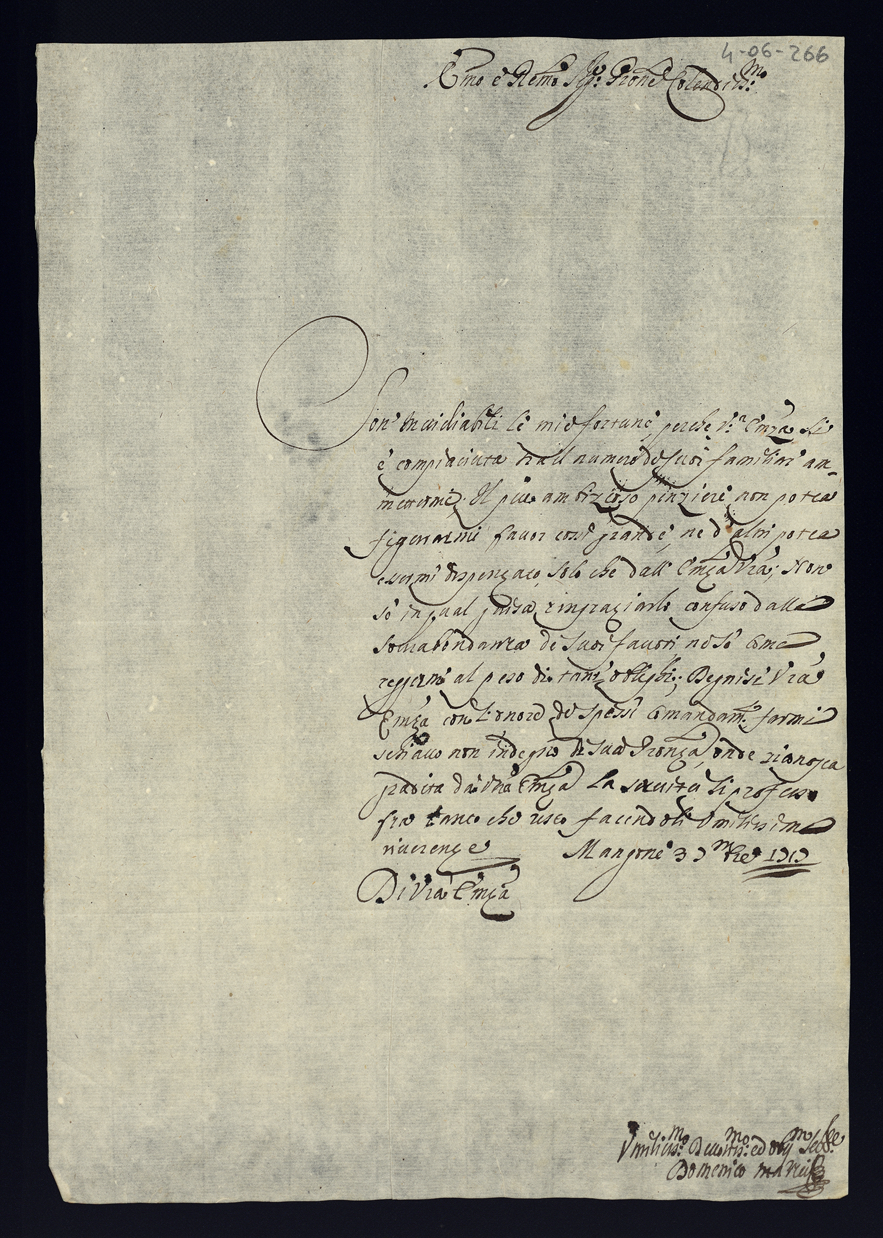 4-06-266
Emo e Remo Sig.r Prone Colendiss.mo
Son' Invidiabili le mie fortune, perche V.a Emza si
è compiaciuta tra il numero de suoi familiari am-
mettermi; Il più ambizioso pinziere non potea
figurarmi favor così grande, ne d'altri potea
essermi dispenzato, solo che dall' Emza Vra; Non
sò in qual guisa ringraziarlo confuso dalla
sourabondanza de suoi fauori ne sò come
reggermi al peso di tanti obblighi; Degnisi Vra
Emza con l'onore de spessi comandam.ti farmi
schiauo non indegno di sua Pronza, onde rionosca
gradita da Vra Emza La seruitù li professo
fra tanto che resto facendoli Umilissima
riuerenza Mangone 3 9mbre
Di Vra Emza
Umiliss.mo Deuotiss.mo ed obl.mo Se
Domenico